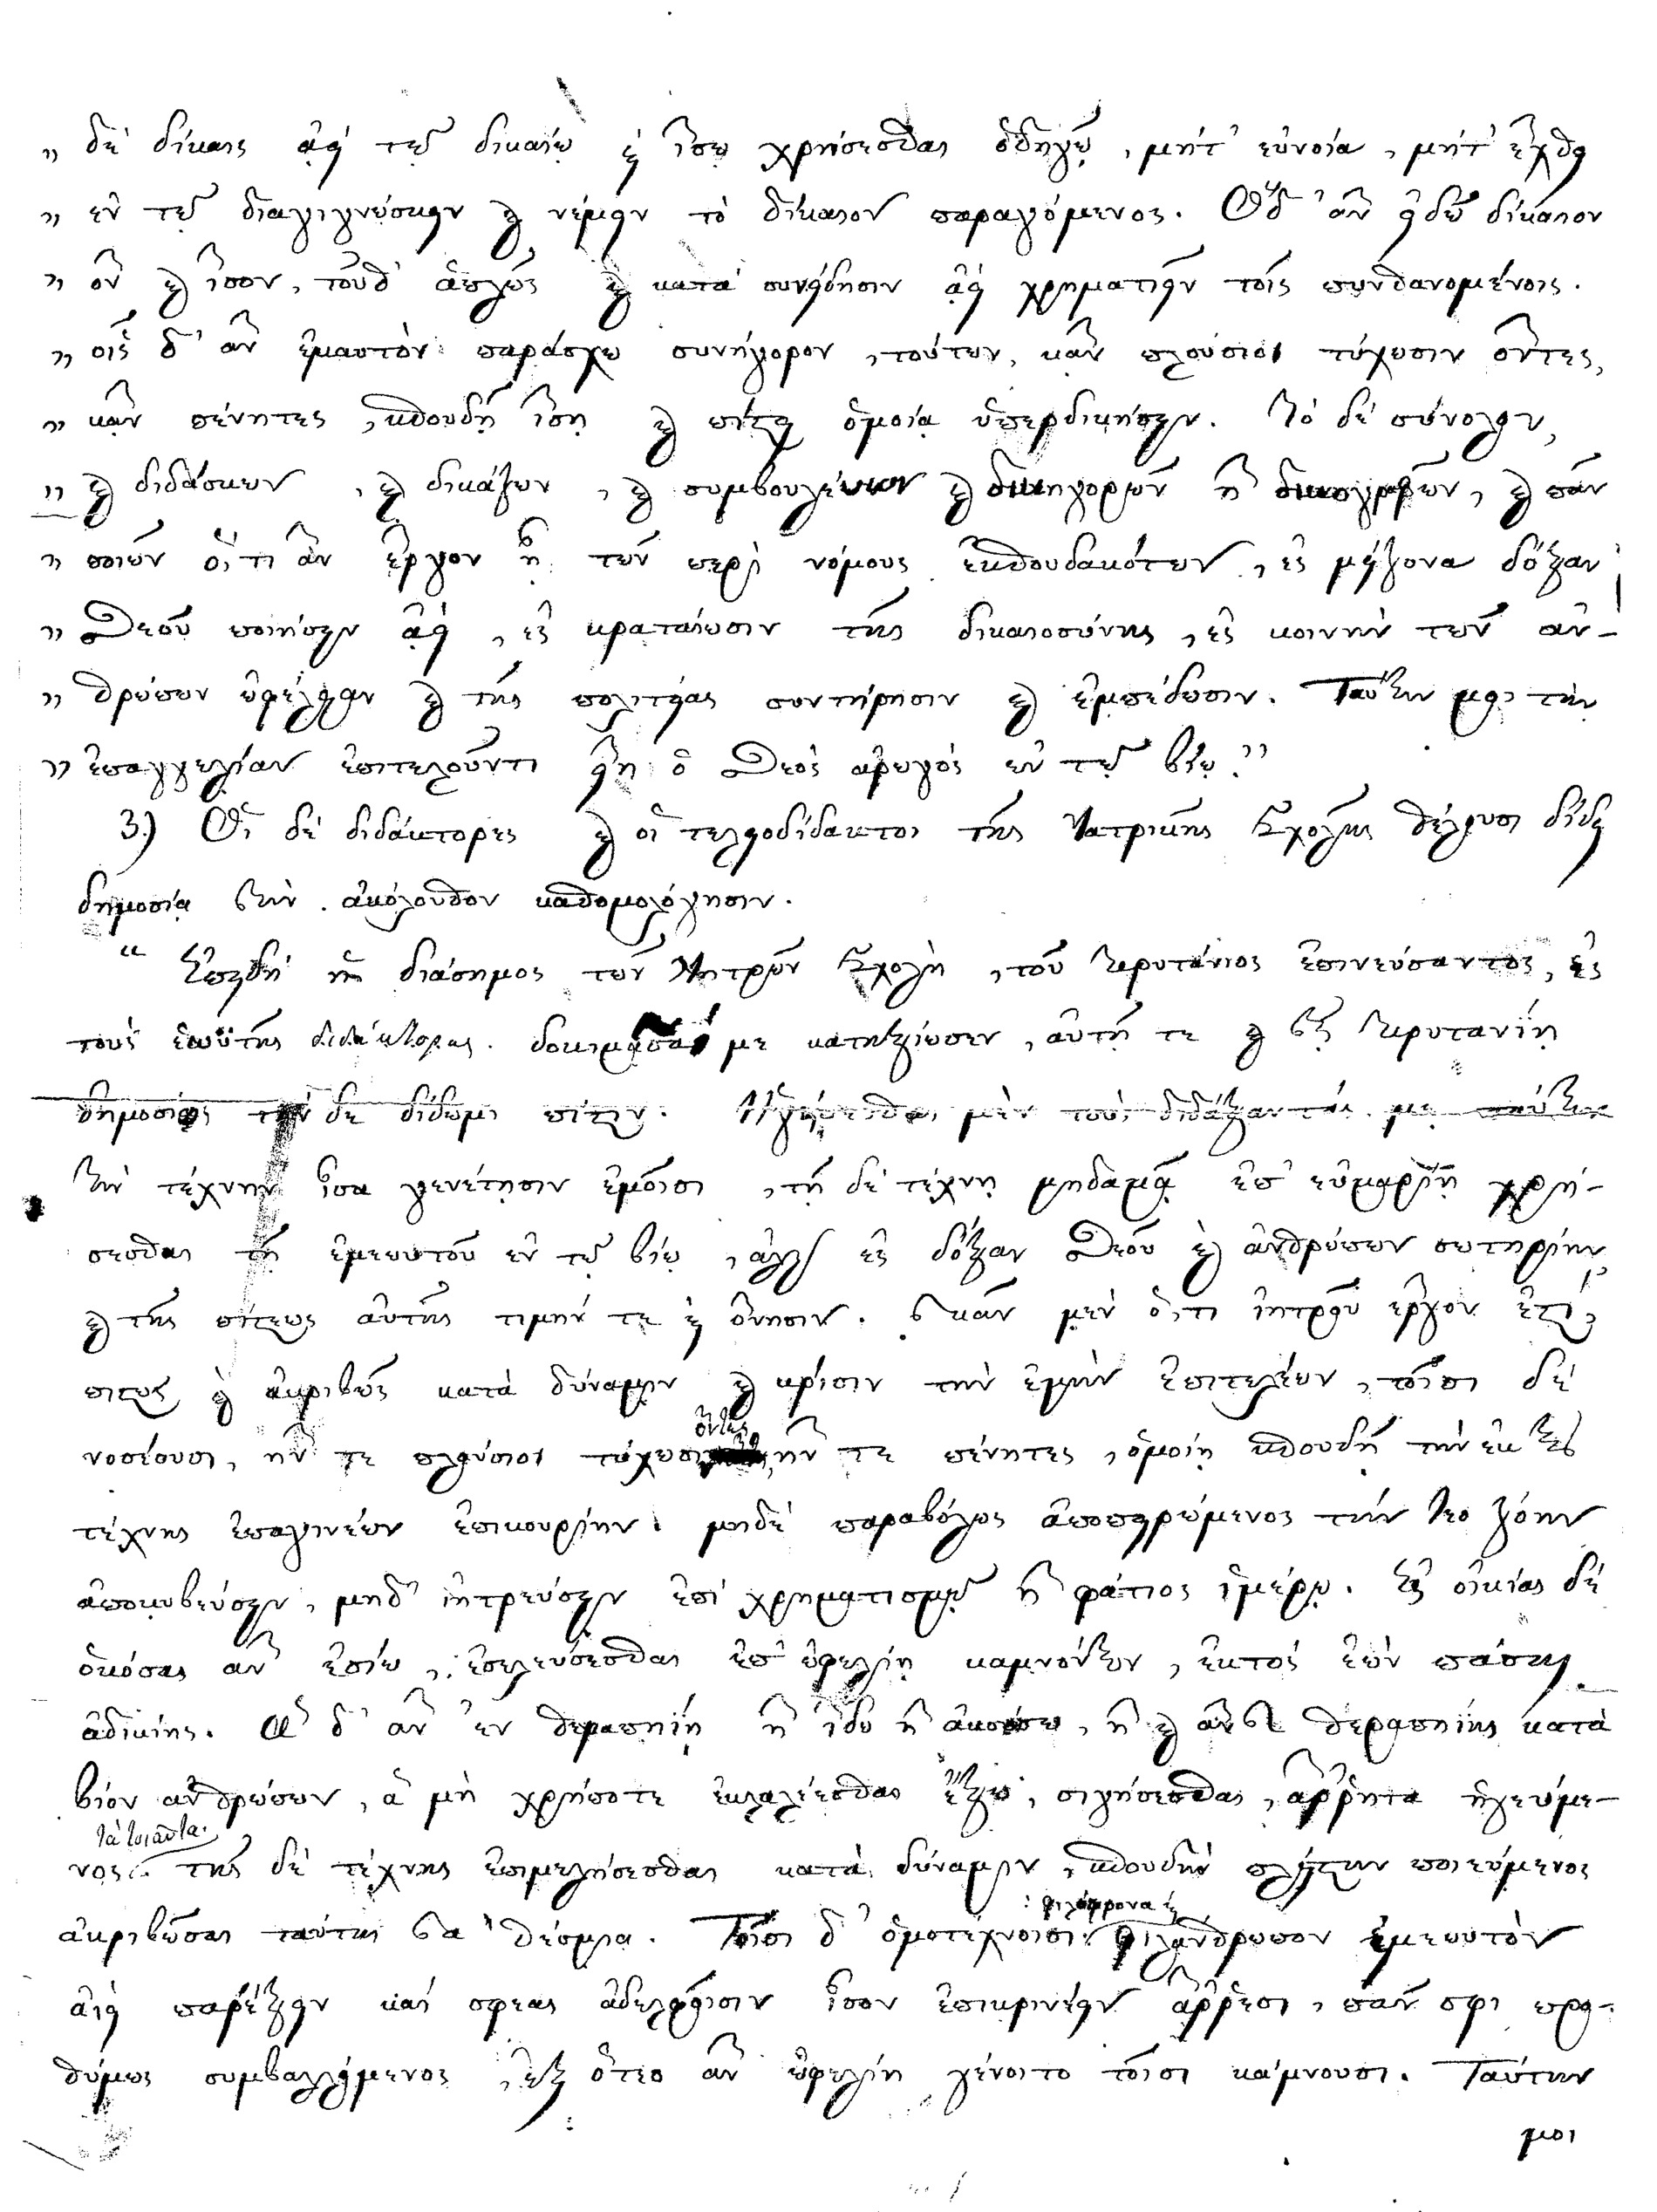 „ δὲ δίκαις ἀεὶ τῷ δικαίῳ καὶ ἴσῳ χρήσεσθαι ὁδηγῷ, μήτ' εὐνοίᾳ, μήτ' ἔχθει
„ ἐν τῷ διαγιγνώσκειν καὶ νέμειν τὸ δίκαιον παραγόμενος. Ὃ δ' ἂν εἰδῶ δίκαιον
„ ὂν καὶ ἴσον, τοῦθ' ἁπλῶς καὶ κατὰ συνείδησιν ἀεὶ χρηματιεῖν τοῖς πυνθανομένοις.
„ οἷς δ' ἂν ἐμαυτὸν παράσχω συνήγορον, τούτων, κἂν πλούσιοι τύχωσιν ὄντες,
„ κἂν πένητες, σπουδῇ ἴσῃ καὶ πίστει ὁμοίᾳ ὑπερδικήσειν. Τὸ δὲ σύνολον,
„ καὶ διδάσκων, καὶ δικάζων, καὶ συμβουλεύων καὶ δικηγορῶν ἢ δικογραφῶν, καὶ πᾶν
„ ποιῶν ὅ,τι ἂν ἔργον ᾖ τῶν περὶ νόμους ἐσπουδακότων, εἰς μείζονα δόξαν
„ Θεοῦ ποιήσειν ἀεὶ, εἰς κραταίωσιν τῆς δικαιοσύνης, εἰς κοινὴν τῶν ἀν-
„ θρώπων ὠφέλειαν καὶ τῆς πολιτείας συντήρησιν καὶ ἐμπέδωσιν. Ταύτην μοι τὴν
„ ἐπαγγελίαν ἐπιτελοῦντι εἴη ὁ Θεὸς ἀρωγὸς ἐν τῷ βίῳ."
3.) Οἱ δὲ διδάκτορες καὶ οἱ τελειοδίδακτοι τῆς Ἰατρικῆς Σχολῆς θέλουσι δίδει
δημοσίᾳ τὴν ἀκόλουθον καθομολόγησιν.
“ Ἐπειδὴ ἡ διάσημος τῶν Ἰητρῶν Σχολὴ, τοῦ Πρυτάνιος ἐπινεύσαντος, ἐς
τοὺς ἑωϋτῆς διδάκτορας δοκιμάσασά με κατηξίωσεν, αὐτῇ τε καὶ τῇ Πρυτανίῃ
δημοσίως τήνδε δίδωμι πίστιν. Ἡγήσεσθαι μὲν τοὺς διδάξαντάς με ταύτην
τὴν τέχνην ἴσα γενέτῃσιν ἐμοῖσι, τῇ δὲ τέχνῃ μηδαμᾷ ἐπ' εὐμαρίῃ χρή-
σεσθαι τῇ ἐμεωυτοῦ ἐν τῷ βίῳ, ἀλλ' ἐς δόξαν Θεοῦ καὶ ἀνθρώπων σωτηρίην
καὶ τῆς πίστεως αὐτῆς τιμήν τε καὶ ὄνησιν. πᾶν μὲν ὅ,τι ἰητροῦ ἔργον ἐστί,
πιστῶς καὶ ἀκριβῶς κατὰ δύναμιν καὶ κρίσιν τὴν ἐμὴν ἐπιτελέων, τοῖσι δὲ
νοσέουσι, ἤν τε πλούσιοι τύχωσι ὄντες, ἤν τε πένητες, ὁμοίῃ σπουδῇ τὴν ἐκ τῆς
τέχνης ἐπαγινέων ἐπικουρίην. μηδὲ παραβόλως ἀποπειρώμενος τήν τεο ζόην
ἀποκυβεύσειν, μηδ' ἰητρεύσειν ἐπὶ χρηματισμῷ ἢ φάτιος ἱμέρῳ. Ἐς οἰκίας δὲ
ὁκόσας ἂν ἐσίω, ἐσελεύσεσθαι ἐπ' ὠφελίῃ καμνόντων, ἐκτὸς ἐὼν πάσης
ἀδικίης. Ἃ δ' ἂν ἐν θεραπηίῃ ἢ ἴδω ἢ ἀκούσω, ἢ καὶ ἄνευ θεραπηίης κατὰ
βίον ἀνθρώπων, ἃ μὴ χρή ποτε ἐκλαλέεσθαι ἔξω, σιγήσεσθαι, ἄρρητα ἡγεύμε-
νος τὰ τοιαῦτα. τῆς δὲ τέχνης ἐπιμελήσεσθαι κατὰ δύναμιν, σπουδὴν πλείστην ποιεύμενος
ἀκριβῶσαι ταύτης τὰ θέσμια. Τοῖσι δ' ὁμοτέχνοισι φιλόφρονα καὶ φιλάνθρωπον ἐμεωυτὸν
αἰεὶ παρέξειν καί σφεας ἀδελφοῖσιν ἴσον ἐπικρινέειν ἄρρεσι, πᾶν σφι προ-
θύμως συμβαλλόμενος, ἐξ ὅτεο ἂν ὠφελίη γένοιτο τοῖσι κάμνουσι. Ταύτην
μοι